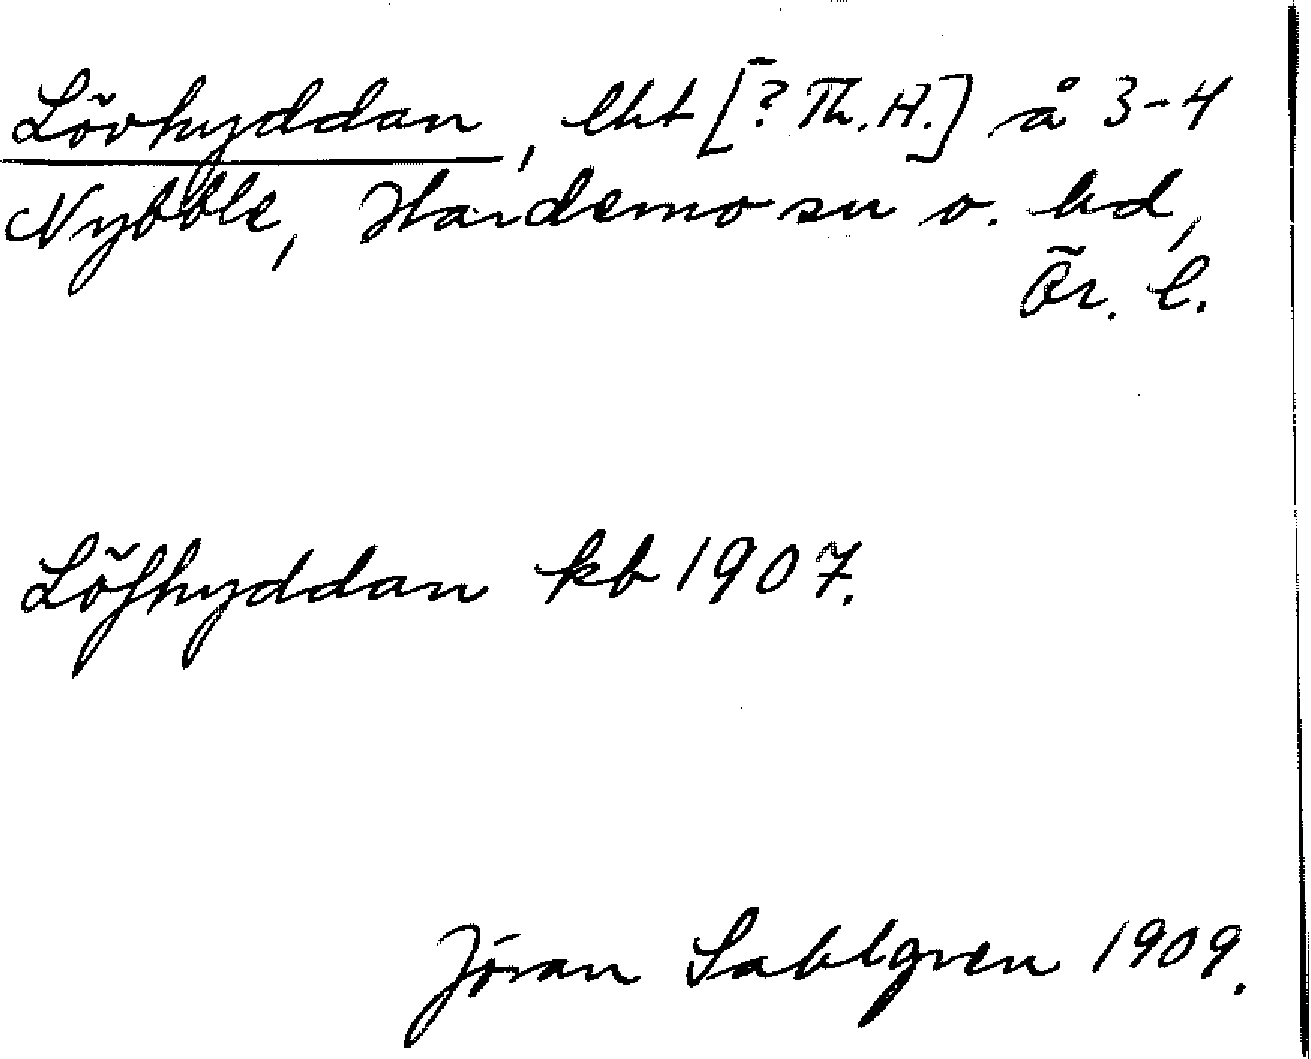 Lövhyddan, lht [? Th. H.] å 3-4
Nybble, Hardemo sn o. hd,
Ör. l.
Löfhyddan kb 1907.
Jöran Sahlgren 1909.